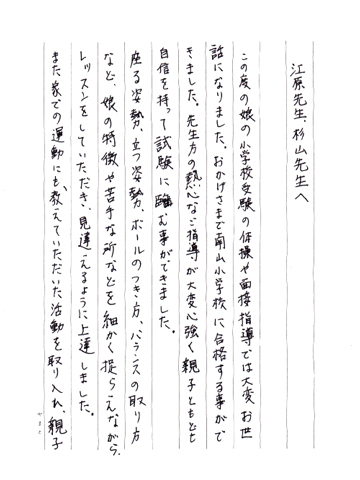 江原先生、杉山先生へ
この度の娘の小学校受験の体操や面接指導では大変お世
話になりました。おかげさまで南山小学校に合格する事がで
きました。先生方の熱心なご指導が大変心強く親子ともども
自信を持って試験に臨む事ができました。
座る姿勢、立つ姿勢、ボールのつき方、バランスの取り方
など、娘の特徴や苦手な所などを細かく捉らえながら、
レッスンをしていただき、見違えるように上達しました。
また家での運動にも、教えていただいた活動を取り入れ、親子